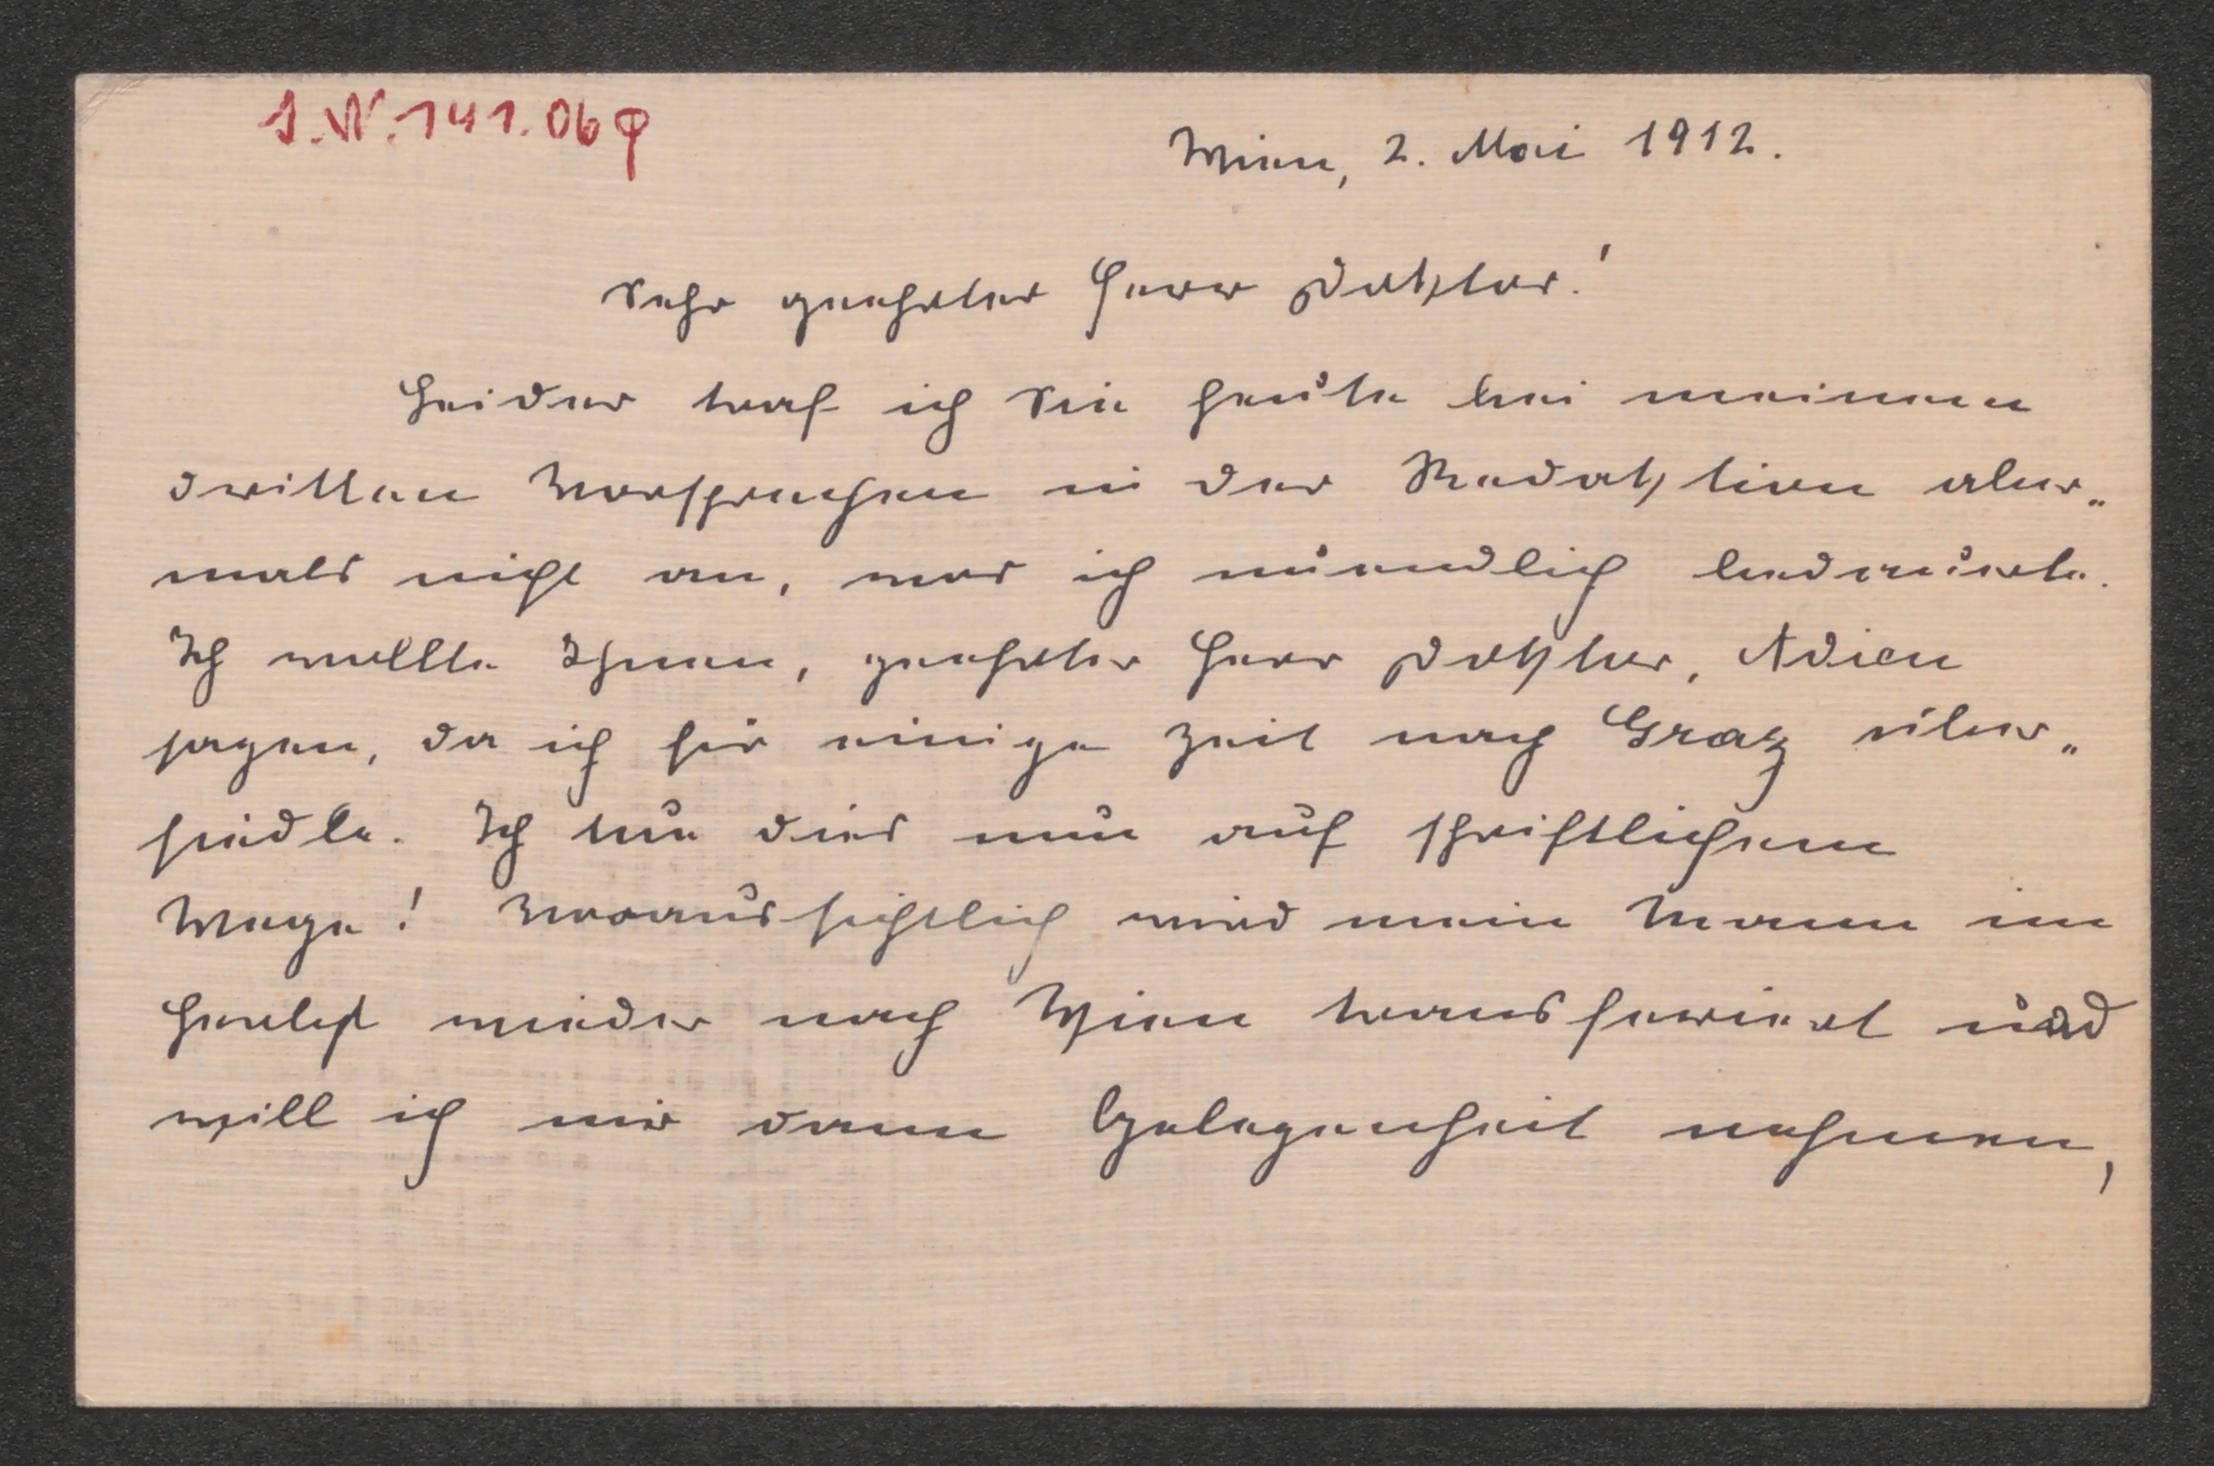 I.N. 141.069
Wien, 2. Mai 1912.
Sehr geehrter Herr Doktor!
Leider traf ich Sie heute bei meinem
dritten Vorsprechen in der Redaktion aber„
mals nicht an, was ich unendlich bedauerte.
Ich wollte Ihnen, geehrter Herr Doktor, Adieu
sagen, da ich für einige Zeit nach Graz über„
siedle. Ich tue dies nun auf schriftlichem
Wege! Voraussichtlich wird mein Mann im
Herbst wieder nach Wien transferiert und
will ich mir dann Gelegenheit nehmen,